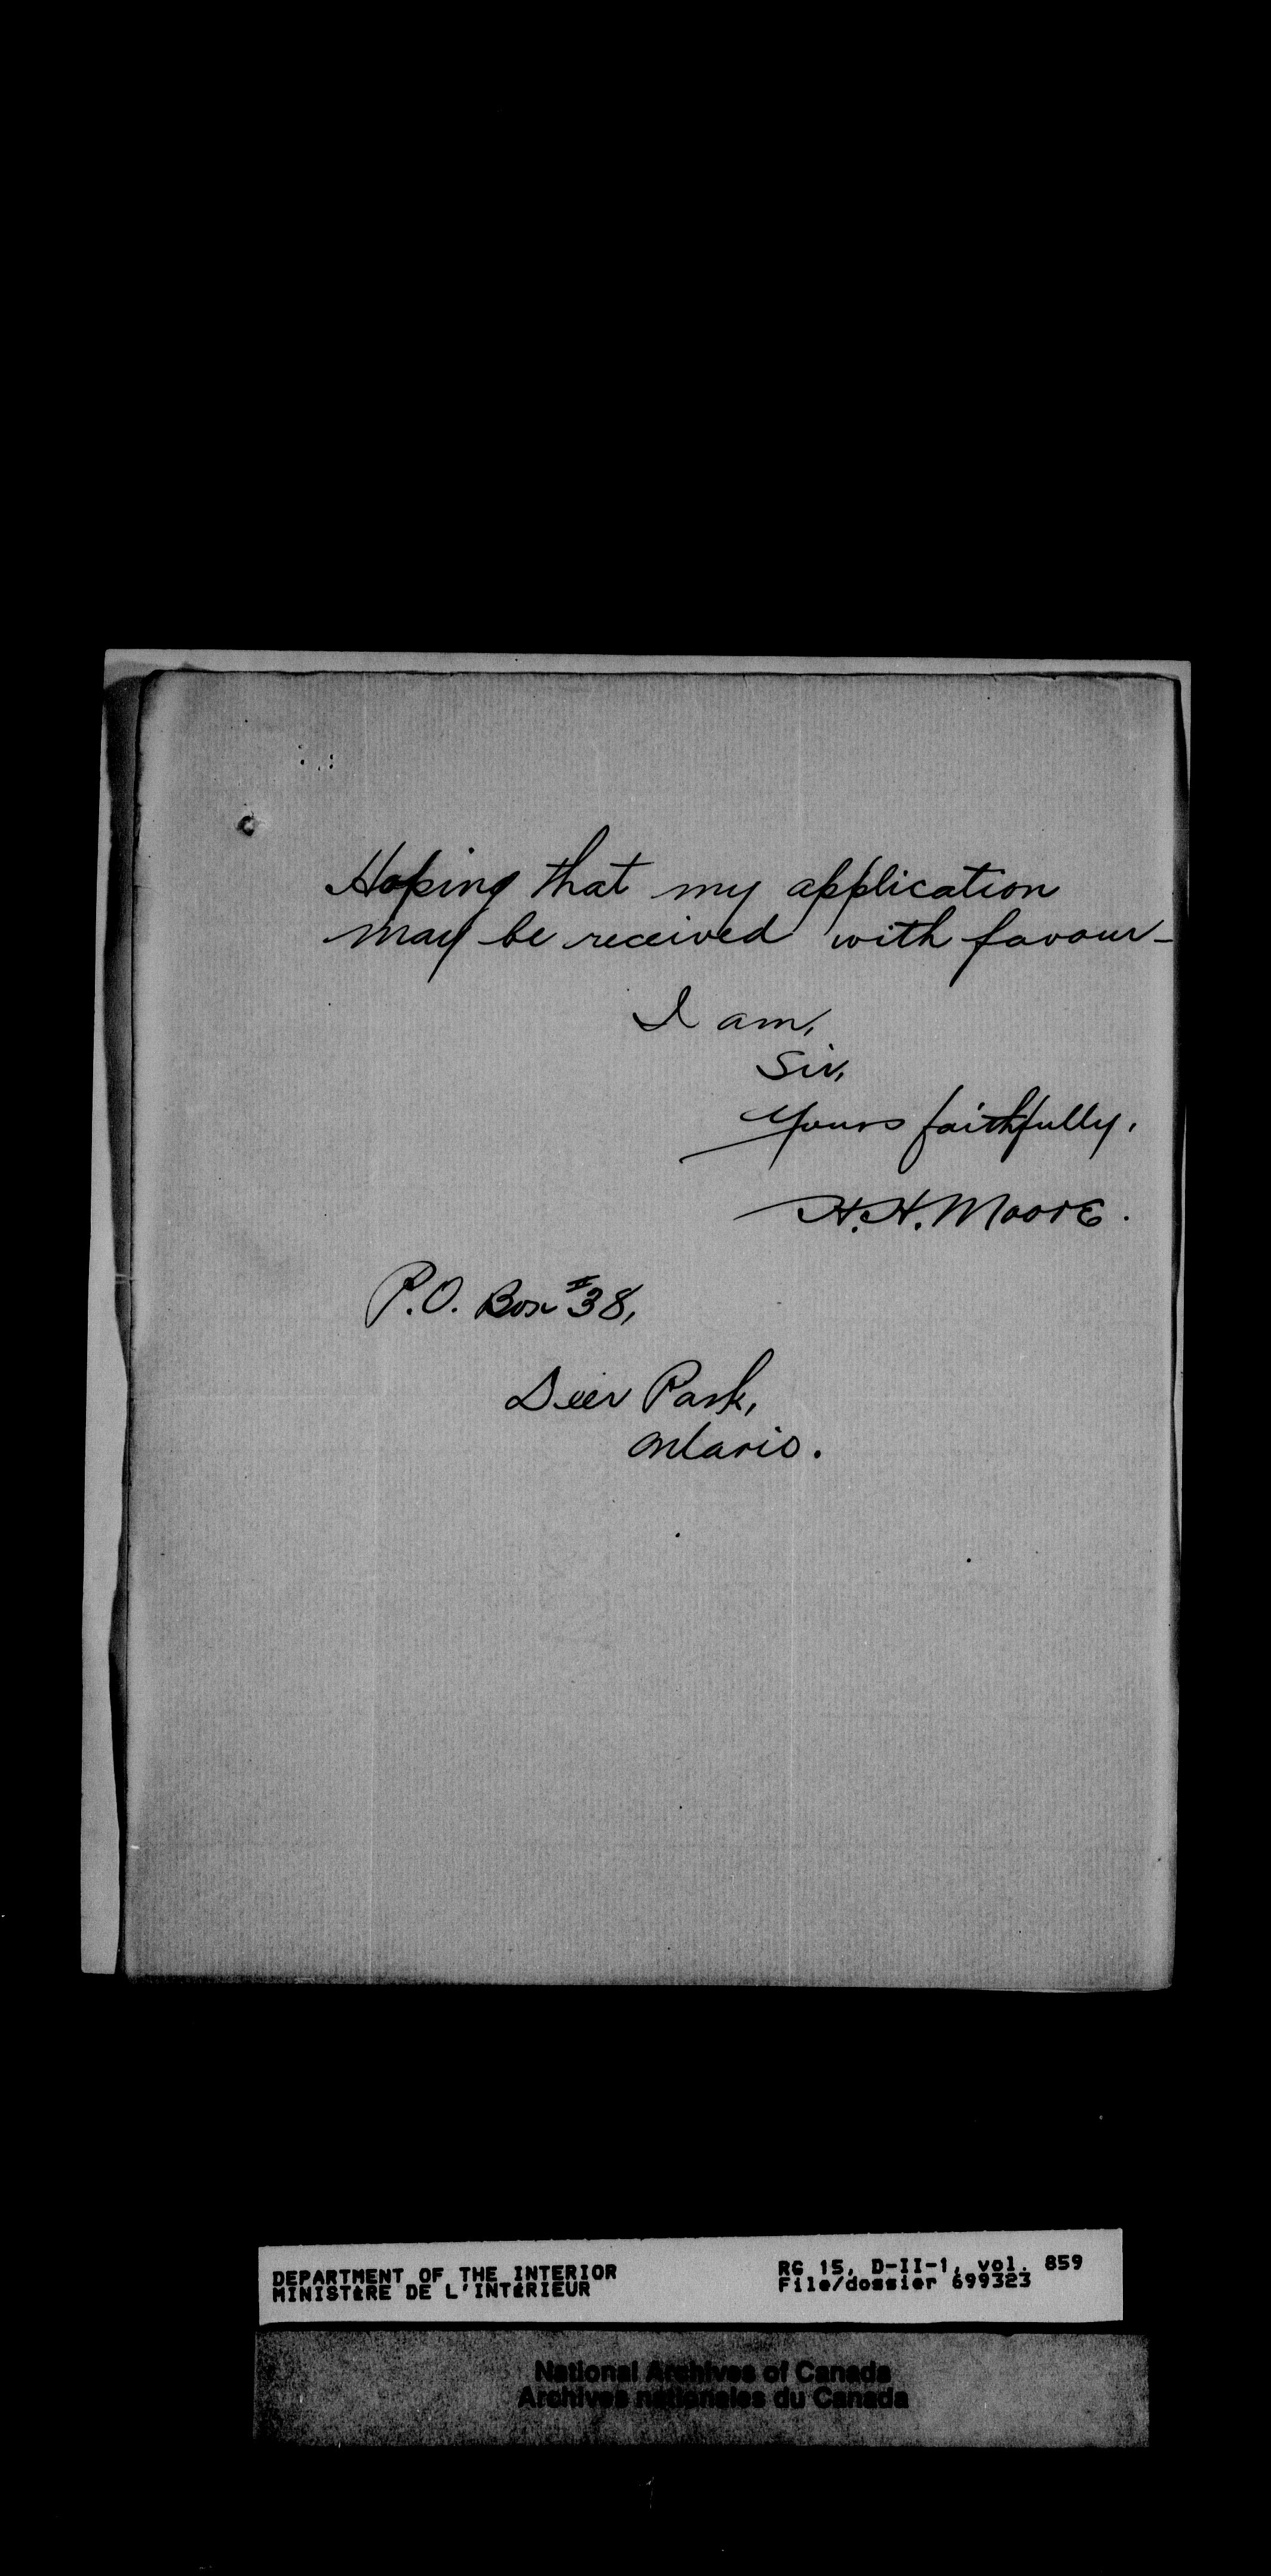 Hoping that my application
may be received with favour-
I am,
Sir,
Yours faithfully,
H.H. Moore.
P.O. Box #38,
Deer Park,
Ontario.
DEPARTMENT OF THE INTERIOR
MINISTÈRE DE L'INTÉRIEUR
RG 15, D-II-1, vol. 859
File/dossier 699323
National Archives of Canada
Archives nationales du Canada